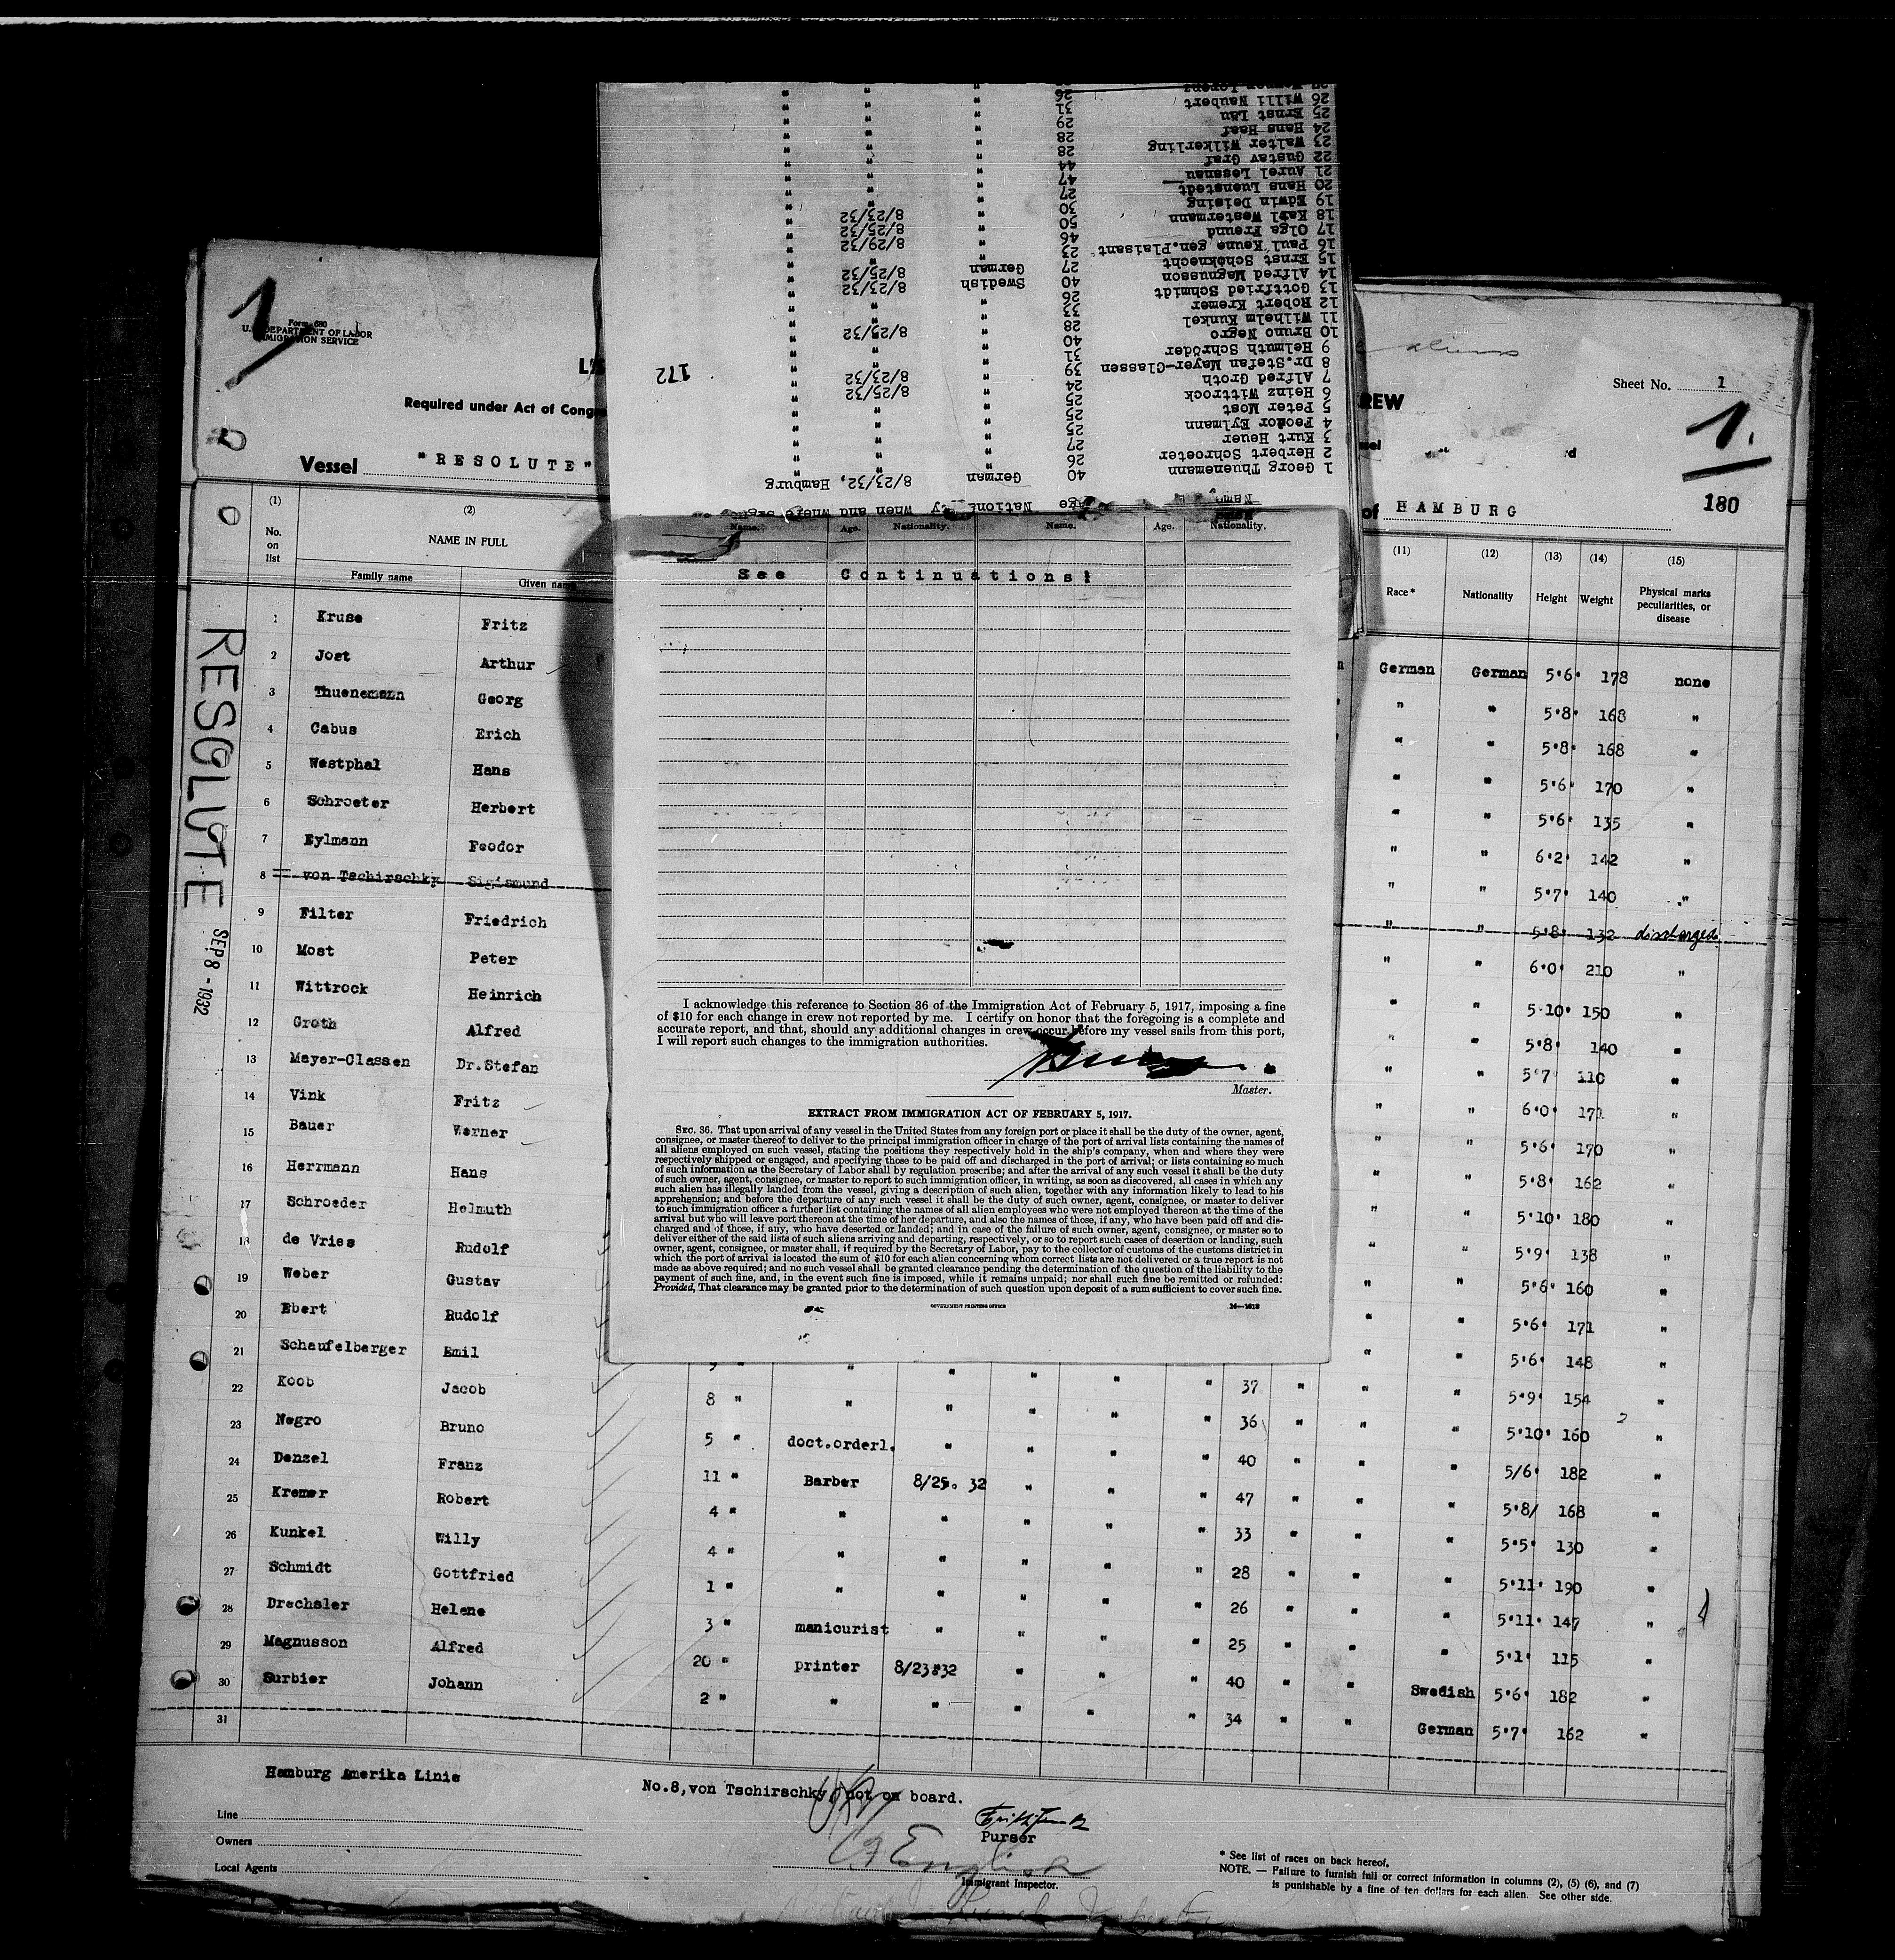 Name Age Nationality when and where signed on
1 Georg Thuenemann 40 German 8/23/32, Hamburg
2 Herbert Schroeter 26 " " "
3 Kurt Heuer 27 " " "
4 Feodor Eylmann 25 " " "
5 Peter Most 25 " " "
6 Heinz Wittrock 25 " 8/25/32 "
7 Alfred Groth 24 " 8/23/32 "
8 Dr.Stefan Mayer-Classen 39 " " "
9 Helmuth Schröder 31 " " "
10 Bruno Negro 40 " 8/25/32 "
11 Wilhelm Kunkel 28 " " "
12 Robert Kremer 33 " " "
13 Gottfried Schmidt 26 " " "
14 Alfred Magnusson 40 Swedish 8/23/32 "
15 Ernst Schöknecht 27 German 8/25/32 "
16 Paul Keune gen.Plaisant 23 " 8/29/32 "
17 Olga Freund 46 " 8/25/32 "
18 Karl Westermann 50 " 8/23/32 "
19 Edwin Deising 30 " " "
20 Hans Luenstedt 27 " " "
21 Aurel Lessnau 47 " " "
22 Gustav Graf 44 " " "
23 Walter Wilkerling 28 " " "
24 Hans Haaf 28 " " "
25 Ernst Läu 29 " " "
26 Willi Naubert 31 " " "
26 " " "
172
1
Form 680
U. S. DEPARTMENT OF LABOR
IMMIGRATION SERVICE
aliens
Sheet No. 1
REW
Required under Act of Congre
1.
Vessel "RESOLUTE"
of HAMBURG
180
(1) (2) (11) (12) (13) (14) (15)
No. on list NAME IN FULL Race* Nationality Height Weight Physical marks peculiarities, or disease
Family name Given name
RESOLUTE SEP 8 - 1932
1 Kruse Fritz German German 5'6" 178 none
2 Jost Arthur " " 5'8" 168 "
3 Thuenemann Georg " " 5'8" 168 "
4 Cabus Erich " " 5'6" 170 "
5 Westphal Hans " " 5'6" 135 "
6 Schroeter Herbert " " 6'2" 142 "
7 Eylmann Feodor " " 5'7" 140 "
8 von Tschirschky Sigismund " " 5'8" 132 discharged
9 Filter Friedrich " " 6'0" 210 "
10 Most Peter " " 5'10" 150 "
11 Wittrock Heinrich " " 5'8" 140 "
12 Groth Alfred " " 5'7" 110 "
13 Meyer-Classen Dr.Stefan " " 6'0" 171 "
14 Vink Fritz " " 5'6" 170 "
15 Bauer Werner " " 5'8" 162 "
16 Herrmann Hans " " 5'10" 180 "
17 Schroeder Helmuth " " 5'9" 138 "
18 de Vries Rudolf " " 5'6" 160 "
19 Weber Gustav " " 5'6" 171 "
20 Ebert Rudolf " " 5'6" 148 "
21 Schaufelberger Emil " " " " " " 37 " " " 5'9" 154 "
22 Koob Jacob 8 " " " " " " 36 " " " 5'10" 160 "
23 Negro Bruno 5 " doct.orderl. " " " " 40 " " " 5/6" 182 "
24 Denzel Franz 11 " Barber 8/25. 32 " " " 47 " " " 5'8/ 168 "
25 Kremer Robert 4 " " " " " " 33 " " " 5'5" 130 "
26 Kunkel Willy 4 " " " " " " 28 " " " 5'11" 190 "
27 Schmidt Gottfried 1 " " " " " " 26 " " " 5'11" 147 "
28 Drechsler Helene 3 " manicurist " " " " 25 " " " 5'1" 115 "
29 Magnusson Alfred 20 " printer 8/23:32 " " " 40 " " Swedish 5'6" 182 "
30 Surbier Johann 2 " " " " " " 34 " " German 5'7" 162 "
31
Hamburg Amerika Linie
No.8,von Tschirschky, not on board.
Line
Purser
Owners
English
Local Agents
Immigrant Inspector.
* See list of races on back hereof.
NOTE. — Failure to furnish full or correct information in columns (2), (5) (6), and (7)
is punishable by a fine of ten dollars for each alien. See other side.
Name. Age. Nationality. Name. Age. Nationality.
See Continuations:
I acknowledge this reference to Section 36 of the Immigration Act of February 5, 1917, imposing a fine
of $10 for each change in crew not reported by me. I certify on honor that the foregoing is a complete and
accurate report, and that, should any additional changes in crew occur before my vessel sails from this port,
I will report such changes to the immigration authorities.
Master.
EXTRACT FROM IMMIGRATION ACT OF FEBRUARY 5, 1917.
SEC. 36. That upon arrival of any vessel in the United States from any foreign port or place it shall be the duty of the owner, agent,
consignee, or master thereof to deliver to the principal immigration officer in charge of the port of arrival lists containing the names of
all aliens employed on such vessel, stating the positions they respectively hold in the ship's company, when and where they were
respectively shipped or engaged, and specifying those to be paid off and discharged in the port of arrival; or lists containing so much
of such information as the Secretary of Labor shall by regulation prescribe; and after the arrival of any such vessel it shall be the duty
of such owner, agent, consignee, or master to report to such immigration officer, in writing, as soon as discovered, all cases in which any
such alien has illegally landed from the vessel, giving a description of such alien, together with any information likely to lead to his
apprehension; and before the departure of any such vessel it shall be the duty of such owner, agent, consignee, or master to deliver
to such immigration officer a further list containing the names of all alien employees who were not employed thereon at the time of the
arrival but who will leave port thereon at the time of her departure, and also the names of those, if any, who have been paid off and dis-
charged and of those, if any, who have deserted or landed; and in case of the failure of such owner, agent, consignee, or master so to
deliver either of the said lists of such aliens arriving and departing, respectively, or so to report such cases of desertion or landing, such
owner, agent, consignee, or master shall, if required by the Secretary of Labor, pay to the collector of customs of the customs district in
which the port of arrival is located the sum of $10 for each alien concerning whom correct lists are not delivered or a true report is not
made as above required; and no such vessel shall be granted clearance pending the determination of the question of the liability to the
payment of such fine, and, in the event such fine is imposed, while it remains unpaid; nor shall such fine be remitted or refunded:
Provided, That clearance may be granted prior to the determination of such question upon deposit of a sum sufficient to cover such fine.
GOVERNMENT PRINTING OFFICE 14—1613